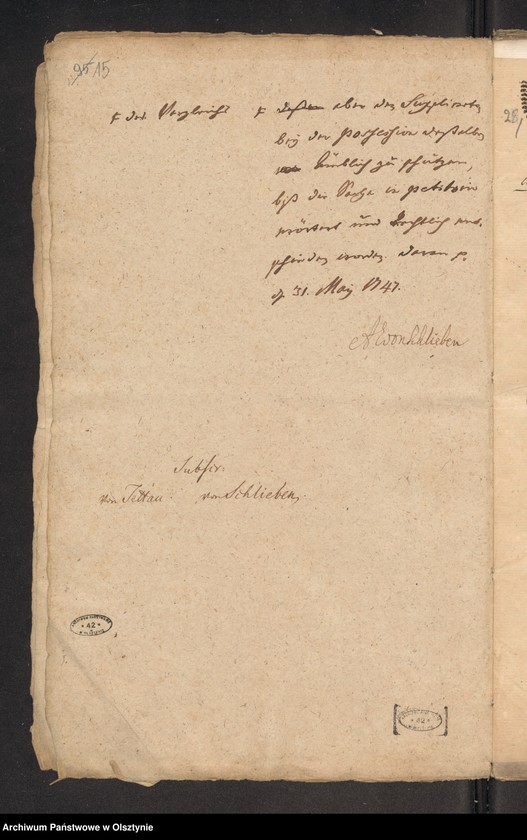 95 15
der Vergleich
aber den Supplicanten
bey der possession desselben
zu schützen,
biß die Sache in petitorio
erörtert und Rechtlich ent-
schieden worden. Daran p.
d 31. May 1747.
AEvonSchlieben
Subscr.
von Tettau. von Schlieben.
42
28,
Archiwum Państwowe w Olsztynie